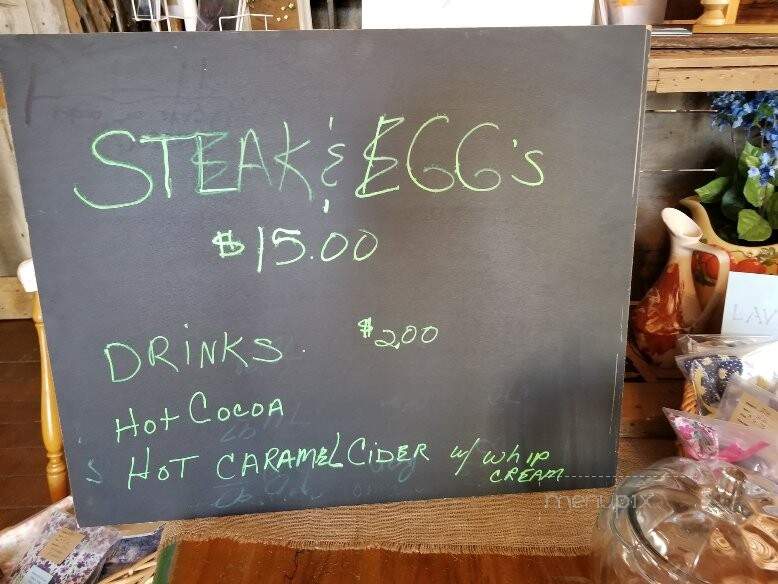 STEAK & EGG's
$15.00
DRINKS. $2.00
Hot COCOA
HOT CARAMEL CIDER w/ whip
CREAM
menupix
LAV